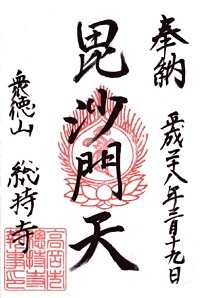 奉納
平成二十八年三月十九日
毘沙門天
衆徳山
総持寺
高岡市
總持寺
執事印